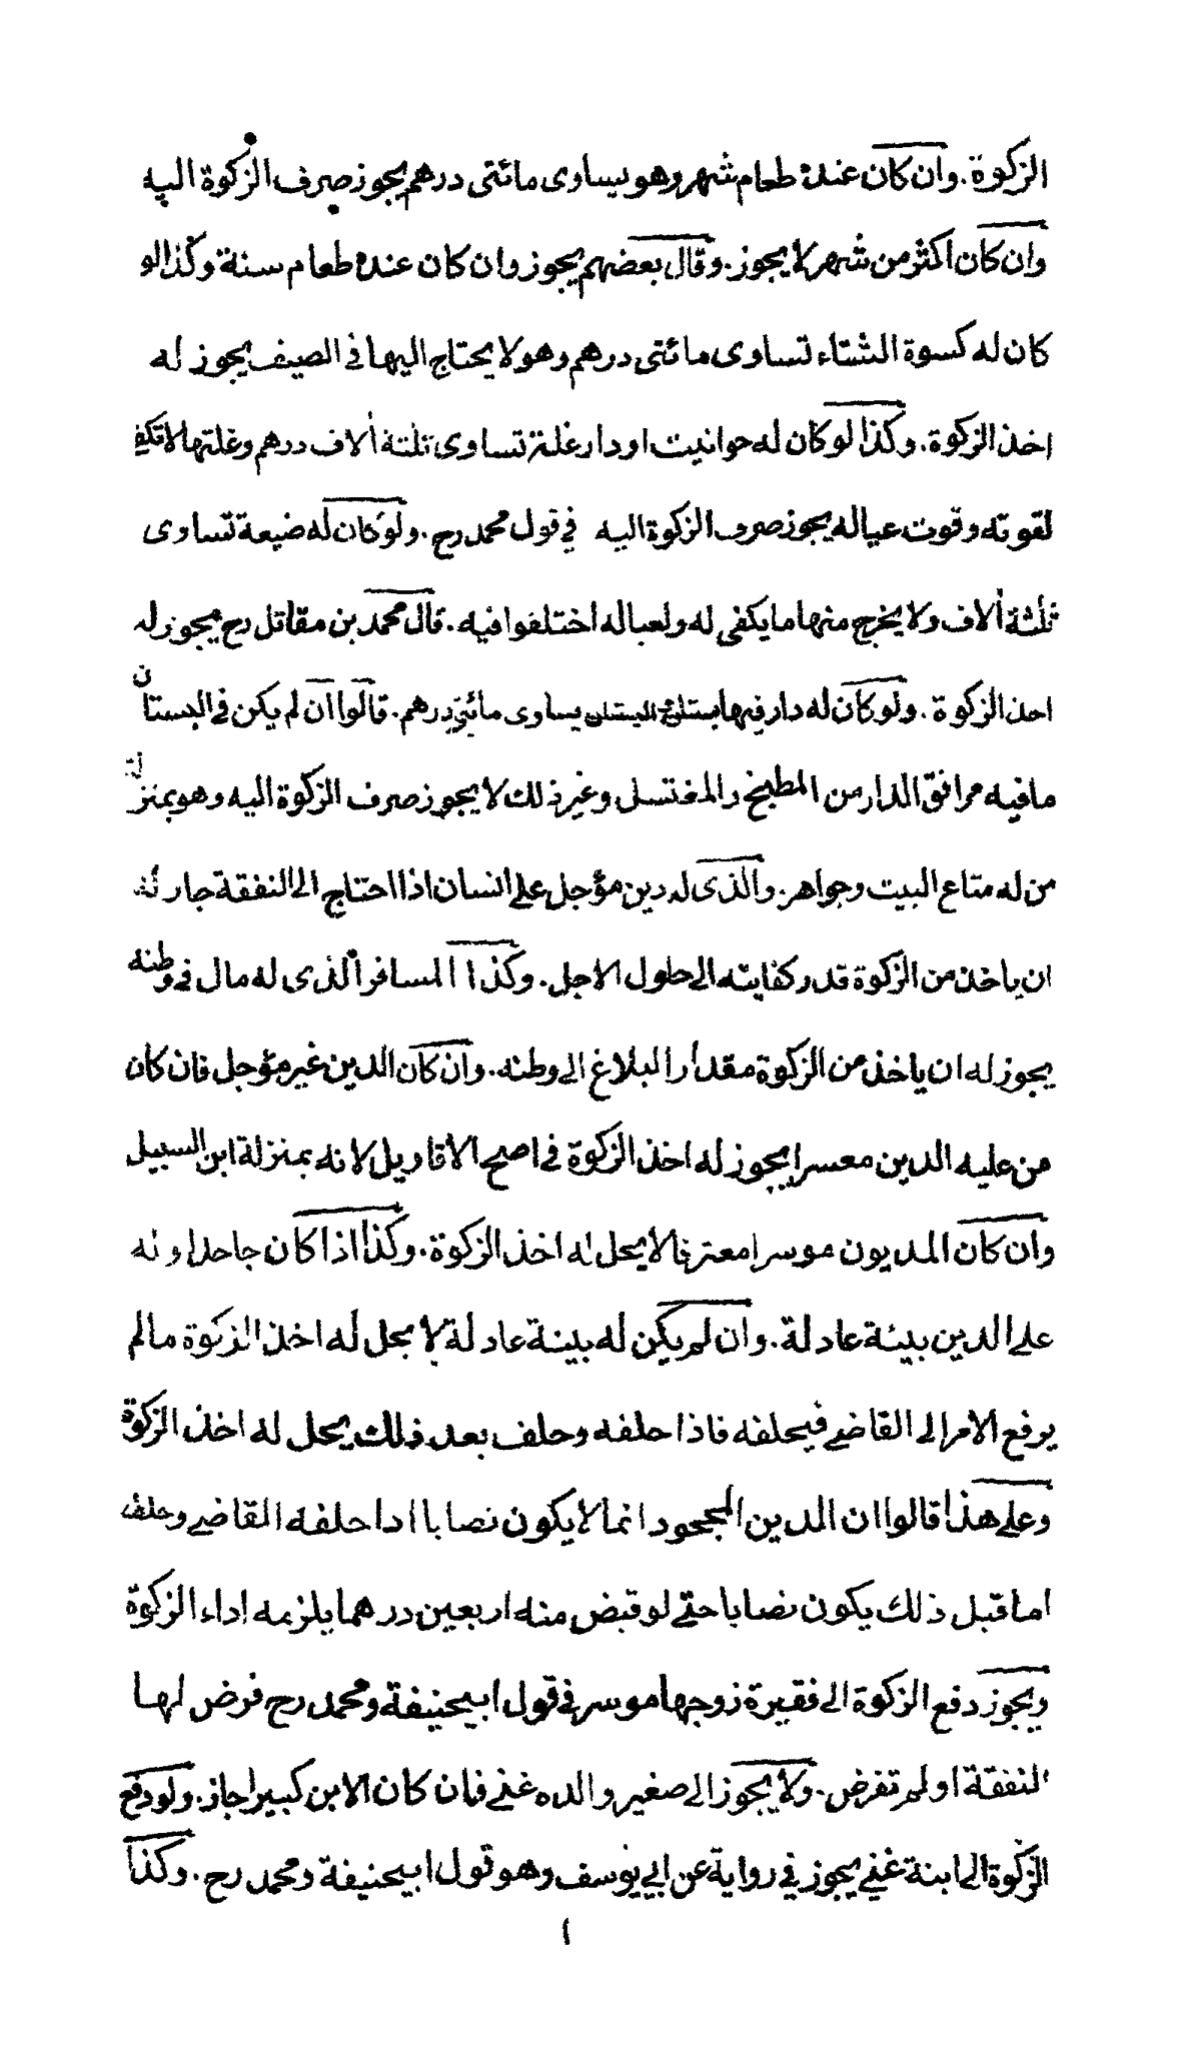 الزكوة. وان كان عنده طعام شهر وهو يساوى مائتى درهم يجوز صرف الزكوة اليه
وان كان اكثر من شهر لا يجوز. وقال بعضهم يجوز وان كان عنده طعام سنة وكذا لو
كان له كسوة الشتاء تساوى مائتى درهم وهو لا يحتاج اليها في الصيف يجوز له
اخذ الزكوة. وكذا لو كان له حوانيت او دار غلة تساوى ثلثة ألاف درهم وغلتها لا تكفي
لقوته وقوت عياله يجوز صرف الزكوة اليه في قول محمد رح. ولو كان له ضيعة تساوى
ثلثة ألاف ولا يخرج منها ما يكفى له ولعياله اختلفوا فيه. قال محمد بن مقاتل رح يجوز له
اخذ الزكوة. ولو كان له دار فيها بستان البستان يساوى مائتي درهم. قالوا ان لم يكن في البستان
ما فيه مرافق الدار من المطبخ والمغتسل وغير ذلك لا يجوز صرف الزكوة اليه وهو بمنزلة
من له متاع البيت وجواهر. والذى له دين مؤجل على انسان اذا احتاج الى النفقة جاز له
ان ياخذ من الزكوة قدر كفايته الى حلول الاجل. وكذا المسافر الذى له مال في وطنه
يجوز له ان ياخذ من الزكوة مقدار البلاغ الى وطنه. وان كان الدين غير مؤجل فان كان
من عليه الدين معسرا يجوز له اخذ الزكوة في اصح الاقاويل لانه بمنزلة ابن السبيل
وان كان المديون موسرا معترفا لا يحل له اخذ الزكوة. وكذا اذا كان جاحدا وله
على الدين بينة عادلة. وان لم يكن له بينة عادلة لا يحل له اخذ الزكوة مالم
يرفع الامر الى القاضي فيحلفه فاذا حلفه وحلف بعد ذلك يحل له اخذ الزكوة
وعلى هذا قالوا ان الدين المجحود انما لا يكون نصابا اذا حلفه القاضي وحلف
اما قبل ذلك يكون نصابا حتى لو قبض منه اربعين درهما يلزمه اداء الزكوة
ويجوز دفع الزكوة الى فقيرة زوجها موسر في قول ابيحنيفة ومحمد رح فرض لها
النفقة او لم تفرض. ولا يجوز الى صغير والده غني فان كان الابن كبيرا جاز. ولو دفع
الزكوة الى ابنة غني يجوز في رواية عن ابي يوسف وهو قول ابيحنيفة ومحمد رح. وكذا